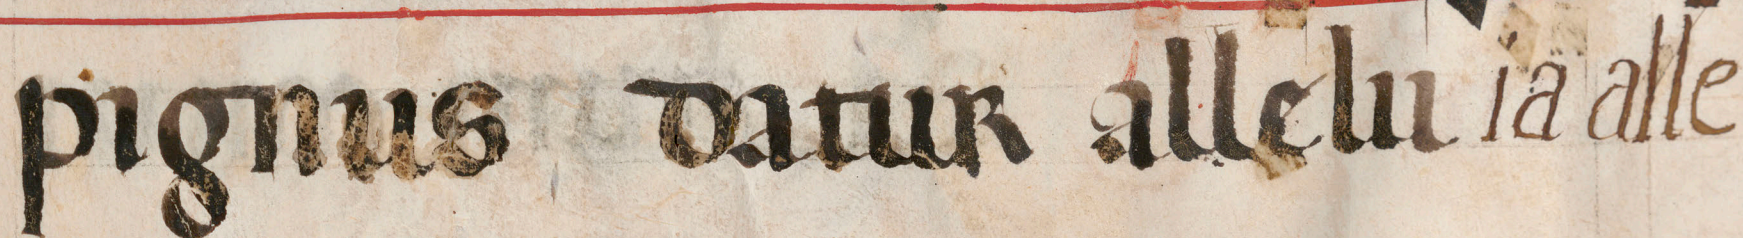 pignus datur allelu ia alle